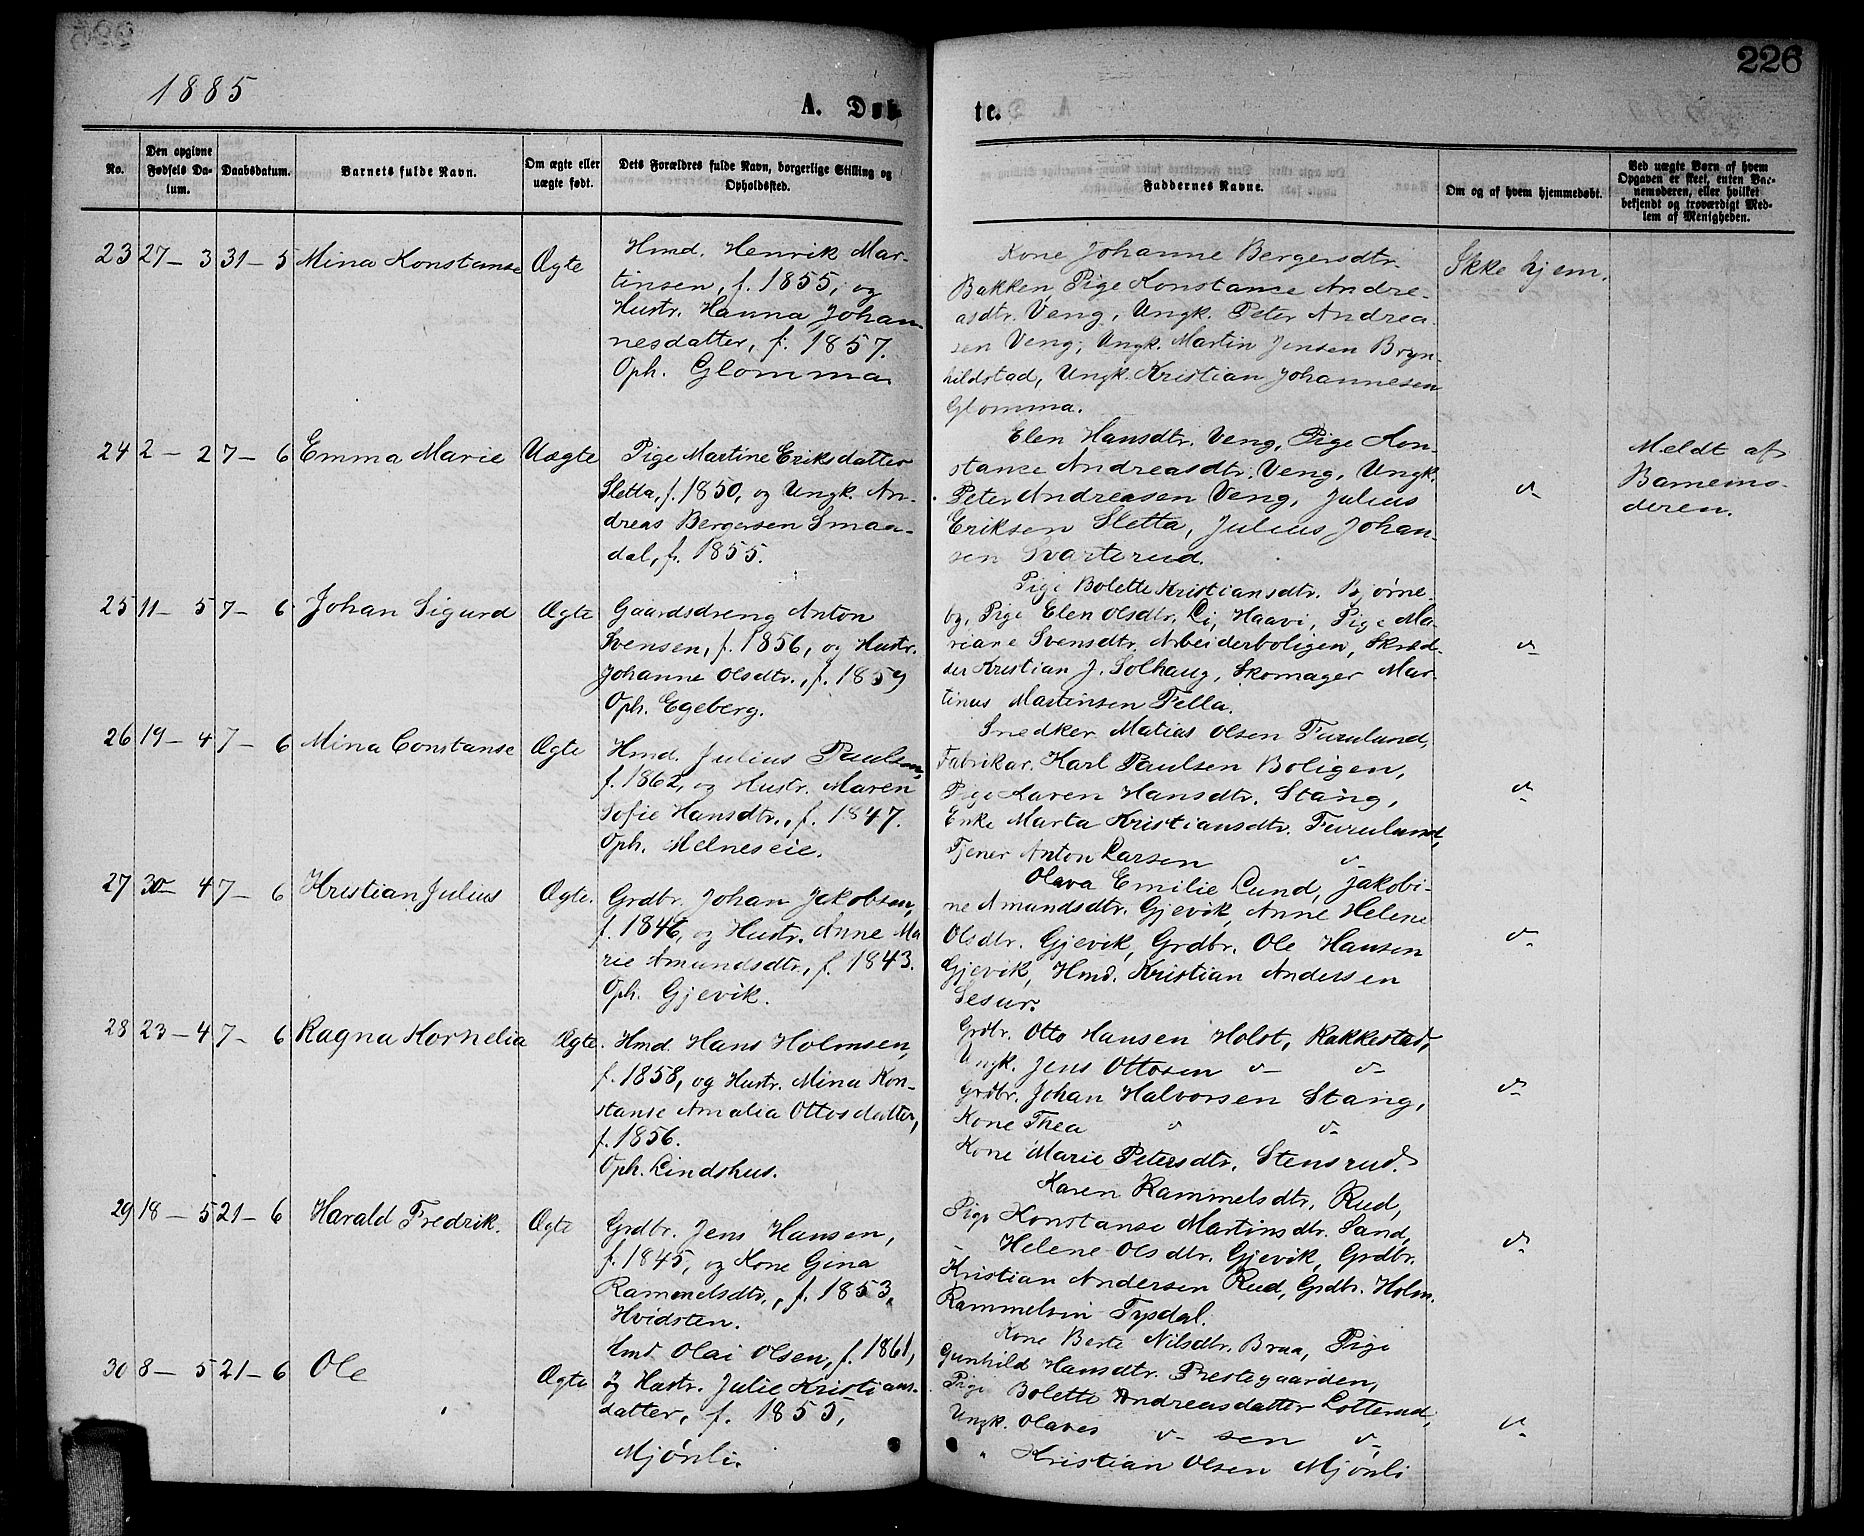 226
1885
A. Døbte.
No.
Den opgivne Fødsels Datum.
Daabsdatum.
Barnets fulde Navn.
Om ægte eller uægte født.
Dets Forældres fulde Navn, borgerlige Stilling og Opholdssted.
Faddernes Navne.
Om og af hvem hjemmedøbt.
Ved uægte Børn af hvem Opgaven er skeet, enten Barnemoderen, eller hvilket bekjendt og troværdigt Medlem af Menigheden.
23 27 – 3 31 – 5 Mina Konstanse Ægte
Hmd. Henrik Mar-
tinsen, f. 1855, og
Hustr. Hanna Johan-
nesdatter, f. 1857.
Oph. Glomma
Kone Johanne Bergersdtr.
Bakken, Pige Konstance Andre-
asdtr. Veng, Ungk. Peter Andrea-
sen Veng, Ungk. Martin Jensen Bryn-
hildstad, Ungk. Kristian Johannesen
Glomma.
Ikke hjem.
24 2 – 2 7 – 6 Emma Marie Uægte
Pige Martine Eriksdatter
Sletta, f. 1850, og Ungk. An-
dreas Bergersen Smaa-
dal, f. 1855.
Elen Hansdtr. Veng, Pige Kon-
stance Andreasdtr. Veng, Ungk.
Peter Andreasen Veng, Julius
Eriksen Sletta, Julius Johan-
sen Svarterud.
v–
Meldt af
Barnemo-
deren.
25 11 – 5 7 – 6 Johan Sigurd Ægte
Gaardsdreng Anton
Svensen, f. 1856, og Hustr.
Johanne Olsdtr., f. 1859
Oph. Egeberg.
Pige Bolette Kristiansdtr. Bjørne-
by, Pige Elen Olsdtr. Li, Haavi, Pige Ma-
riane Svensdtr. Arbeiderboligen, Skræd-
der Kristian J. Solhaug, Skomager Mar-
tinus Martinsen Fella.
v–
26 19 – 4 7 – 6 Mina Constanse Ægte
Hmd. Julius Paulsen,
f. 1862, og Hustr. Maren
Sofie Hansdtr., f. 1847.
Oph. Melneseie.
Snedker Matias Olsen Furulund,
Fabrikar. Karl Paulsen Boligen,
Pige Karen Hansdtr. Stang,
Enke Marta Kristiansdtr. Furulund,
Tjener Anton Larsen v–
v–
27 30 – 4 7 – 6 Kristian Julius Ægte.
Grdbr. Johan Jakobsen,
f. 1846, og Hustr. Anne Ma
rie Amundsdtr., f. 1843.
Oph. Gjevik.
Olava Emilie Lund, Jakobi-
ne Amundsdtr. Gjevik, Anne Helene
Olsdtr. Gjevik, Grdbr. Ole Hansen
Gjevik, Hmd. Kristian Andersen
Sesur.
v–
28 23 – 4 7 – 6 Ragna Kornelia Ægte.
Hmd. Hans Holmsen,
f. 1858, og Hustr. Mina Kon-
stanse Amalia Ottosdatter,
f. 1856.
Oph. Lindshus.
Grdbr. Otto Hansen Holst, Rakkestad,
Ungk. Jens Ottosen v– v–
Grdbr. Johan Halvorsen Stang,
Kone Thea v v–
Kone Marie Petersdtr. Stensrud.
v–
29 18 – 5 21 – 6 Harald Fredrik. Ægte
Grdbr. Jens Hansen,
f. 1845, og Kone Gina
Rammelsdtr., f. 1853,
Hvidsten.
Karen Rammelsdtr. Rud,
Pige Konstanse Martinsdtr. Sand,
– Helene Olsdtr. Gjevik, Grdbr.
Kristian Andersen Rud, Grdbr. Holm.
Rammelsin Tysdal.
v–
30 8 – 5 21 – 6 Ole Ægte
Hmd Olai Olsen, f. 1861,
og Hustr. Julie Kristians-
datter, f. 1855,
Mjønli.
Kone Berte Nilsdtr. Braa, Pige
Gunhild Hansdtr. Prestegaarden,
Pige Bolette Andreasdatter Lotterud,
Ungk. Olaves v– sen v–,
" Kristian Olsen Mjønli
v–